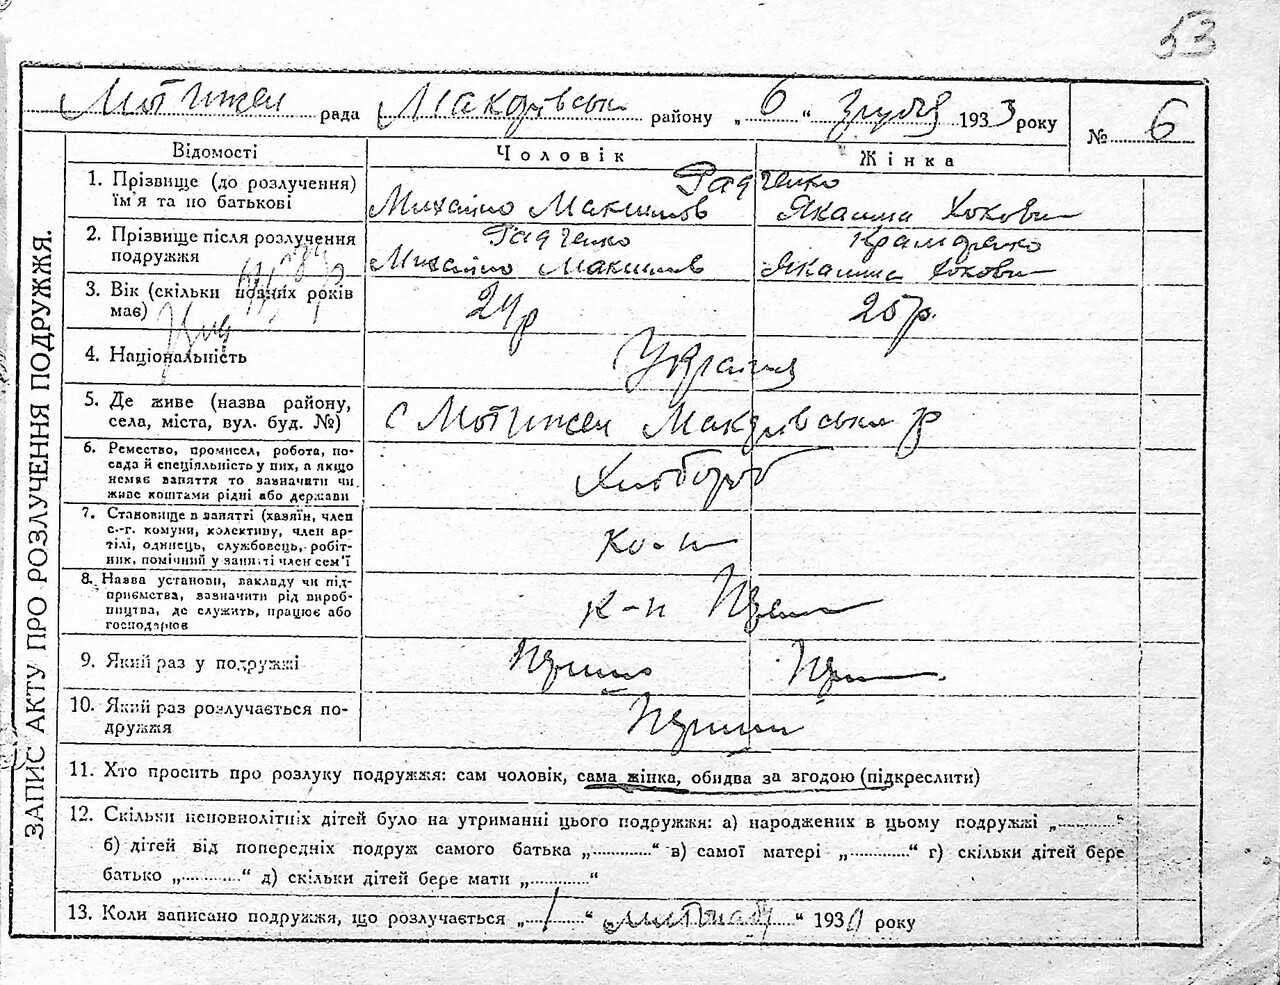 53
Мотижен рада Макарівськ району „ 6 “ грудня 1933 року
№ 6
ЗАПИС АКТУ ПРО РОЗЛУЧЕННЯ ПОДРУЖЖЯ.
Відомості Чоловік Жінка
1. Прізвище (до розлучення) ім'я та по батькові
Радченко
Михайло Максимов Якилина
2. Прізвище після розлучення подружжя
Радченко
Михайло Максимов
3. Вік (скільки повних років має)
24р 25р.
4. Національність
Україн
5. Де живе (назва району, села, міста, вул. буд. №)
с Мотижен Макарівськи р
6. Ремество, промисел, робота, посада й спеціяльність у них, а якщо немає заняття то зазначати чи живе коштами рідні або держави
Хлібороб
7. Становище в занятті (хазяїн, член с.-г. комуни, колективу, член артілі, одинець, службовець, робітник, помічний у занятті член сем'ї
8. Назва установи, закладу чи підприємства, зазначити рід виробництва, де служить, працює або господарює
9. Який раз у подружжі
10. Який раз розлучається подружжя
11. Хто просить про розлуку подружжя: сам чоловік, сама жінка, обидва за згодою (підкреслити)
12. Скільки неповнолітніх дітей було на утриманні цього подружжя: а) народжених в цьому подружжі „..........“
б) дітей від попередніх подруж самого батька „..........“ в) самої матері „..........“ г) скільки дітей бере
батько „..........“ д) скільки дітей бере мати „..........“
13. Коли записано подружжя, що розлучається „ 1 “ листопаду “ 193 року